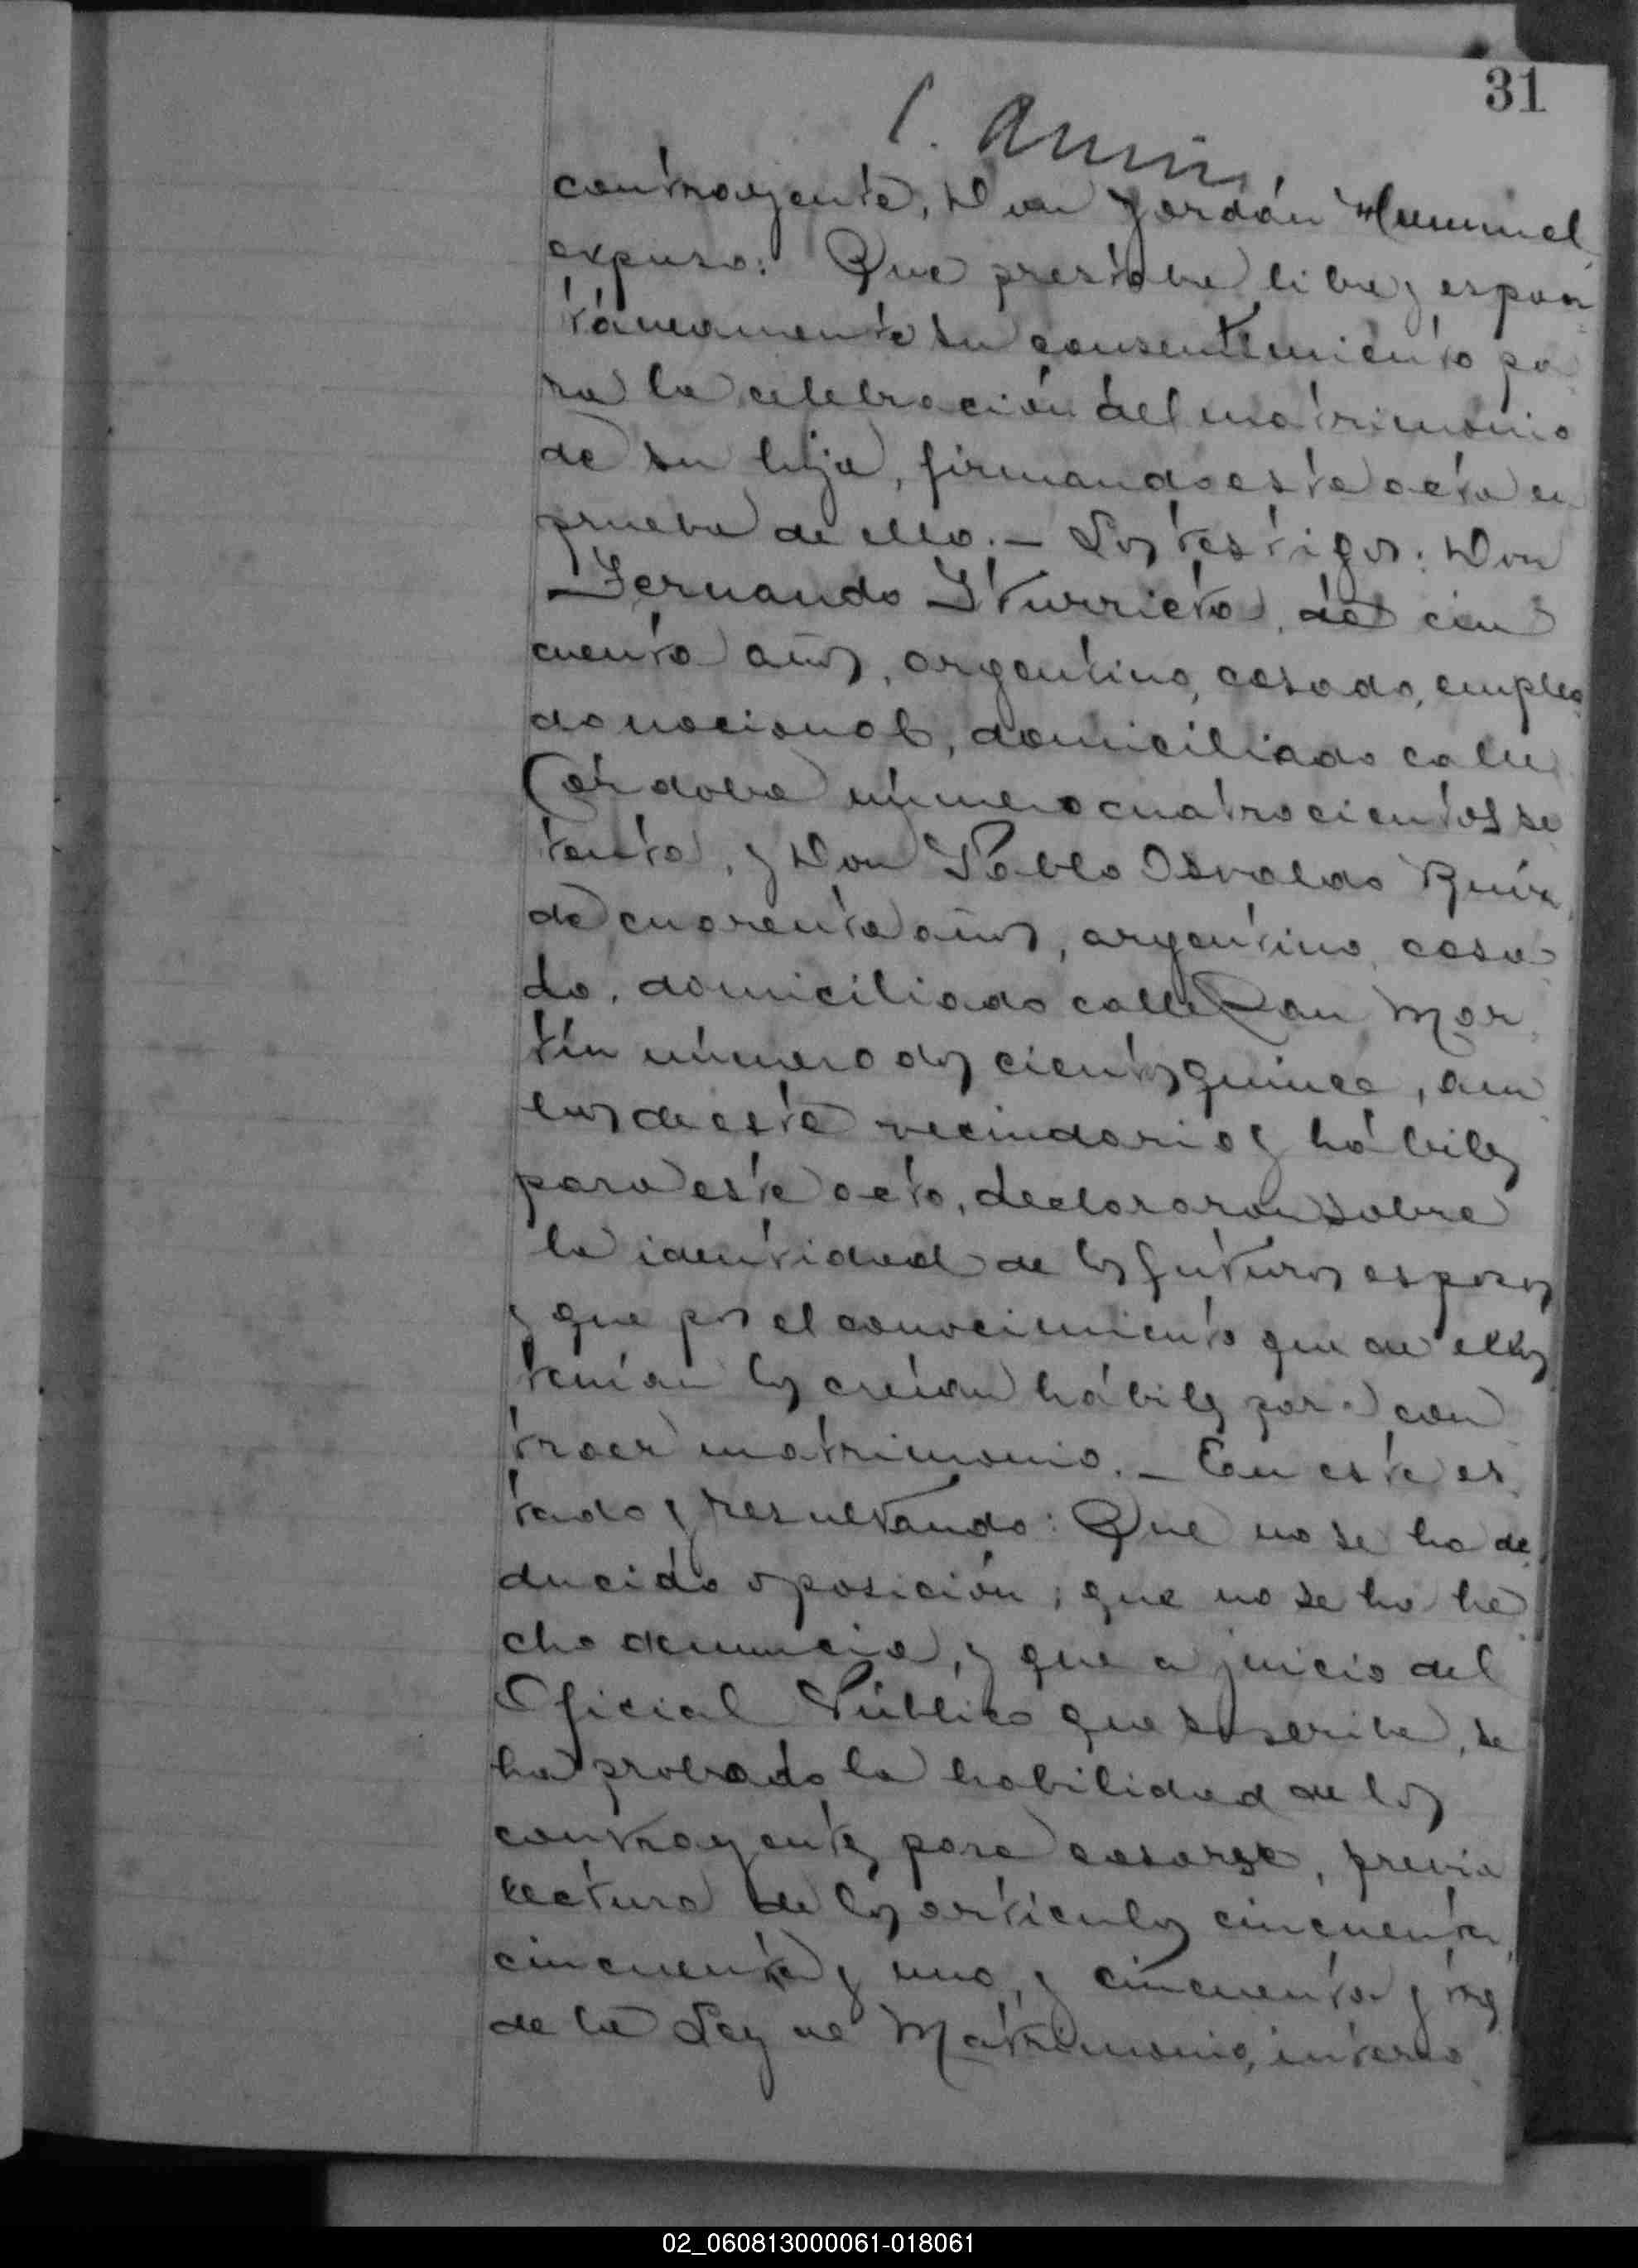 31
contrayente, Don Jordán Hummel
expuso: Que prestaba libre y espon
táneamente su consentimiento pa
ra la celebración del matrimonio
de su hija, firmando este acta en
prueba de ello.- Los testigos: Don
Fernando Iturrieta, de cin
cuenta años, argentino, casado, emplea
do nacional, domiciliado calle
Córdoba número cuatrocientos se
tenta, y Don Pablo Osvaldo Ruiz
de cuarenta años, argentino, casa
do, domiciliado calle San Mar
tín número dos cientos quince, am
bos de este vecindario y hábiles
para este acto, declararon sobre
la identidad de los futuros esposos
y que por el conocimiento que de ellos
tenían los creían hábiles para con
traer matrimonio.- En este es
tado y resultando: Que no se ha de
ducido oposición; que no se ha he
cho denuncia, y que a juicio del
Oficial Público que suscribe, se
ha probado la habilidad de los
contrayentes para casarse, previa
lectura de los artículos cincuenta,
cincuenta y uno, y cincuenta y tres
de la Ley de Matrimonio, interro
02_060813000061-018061